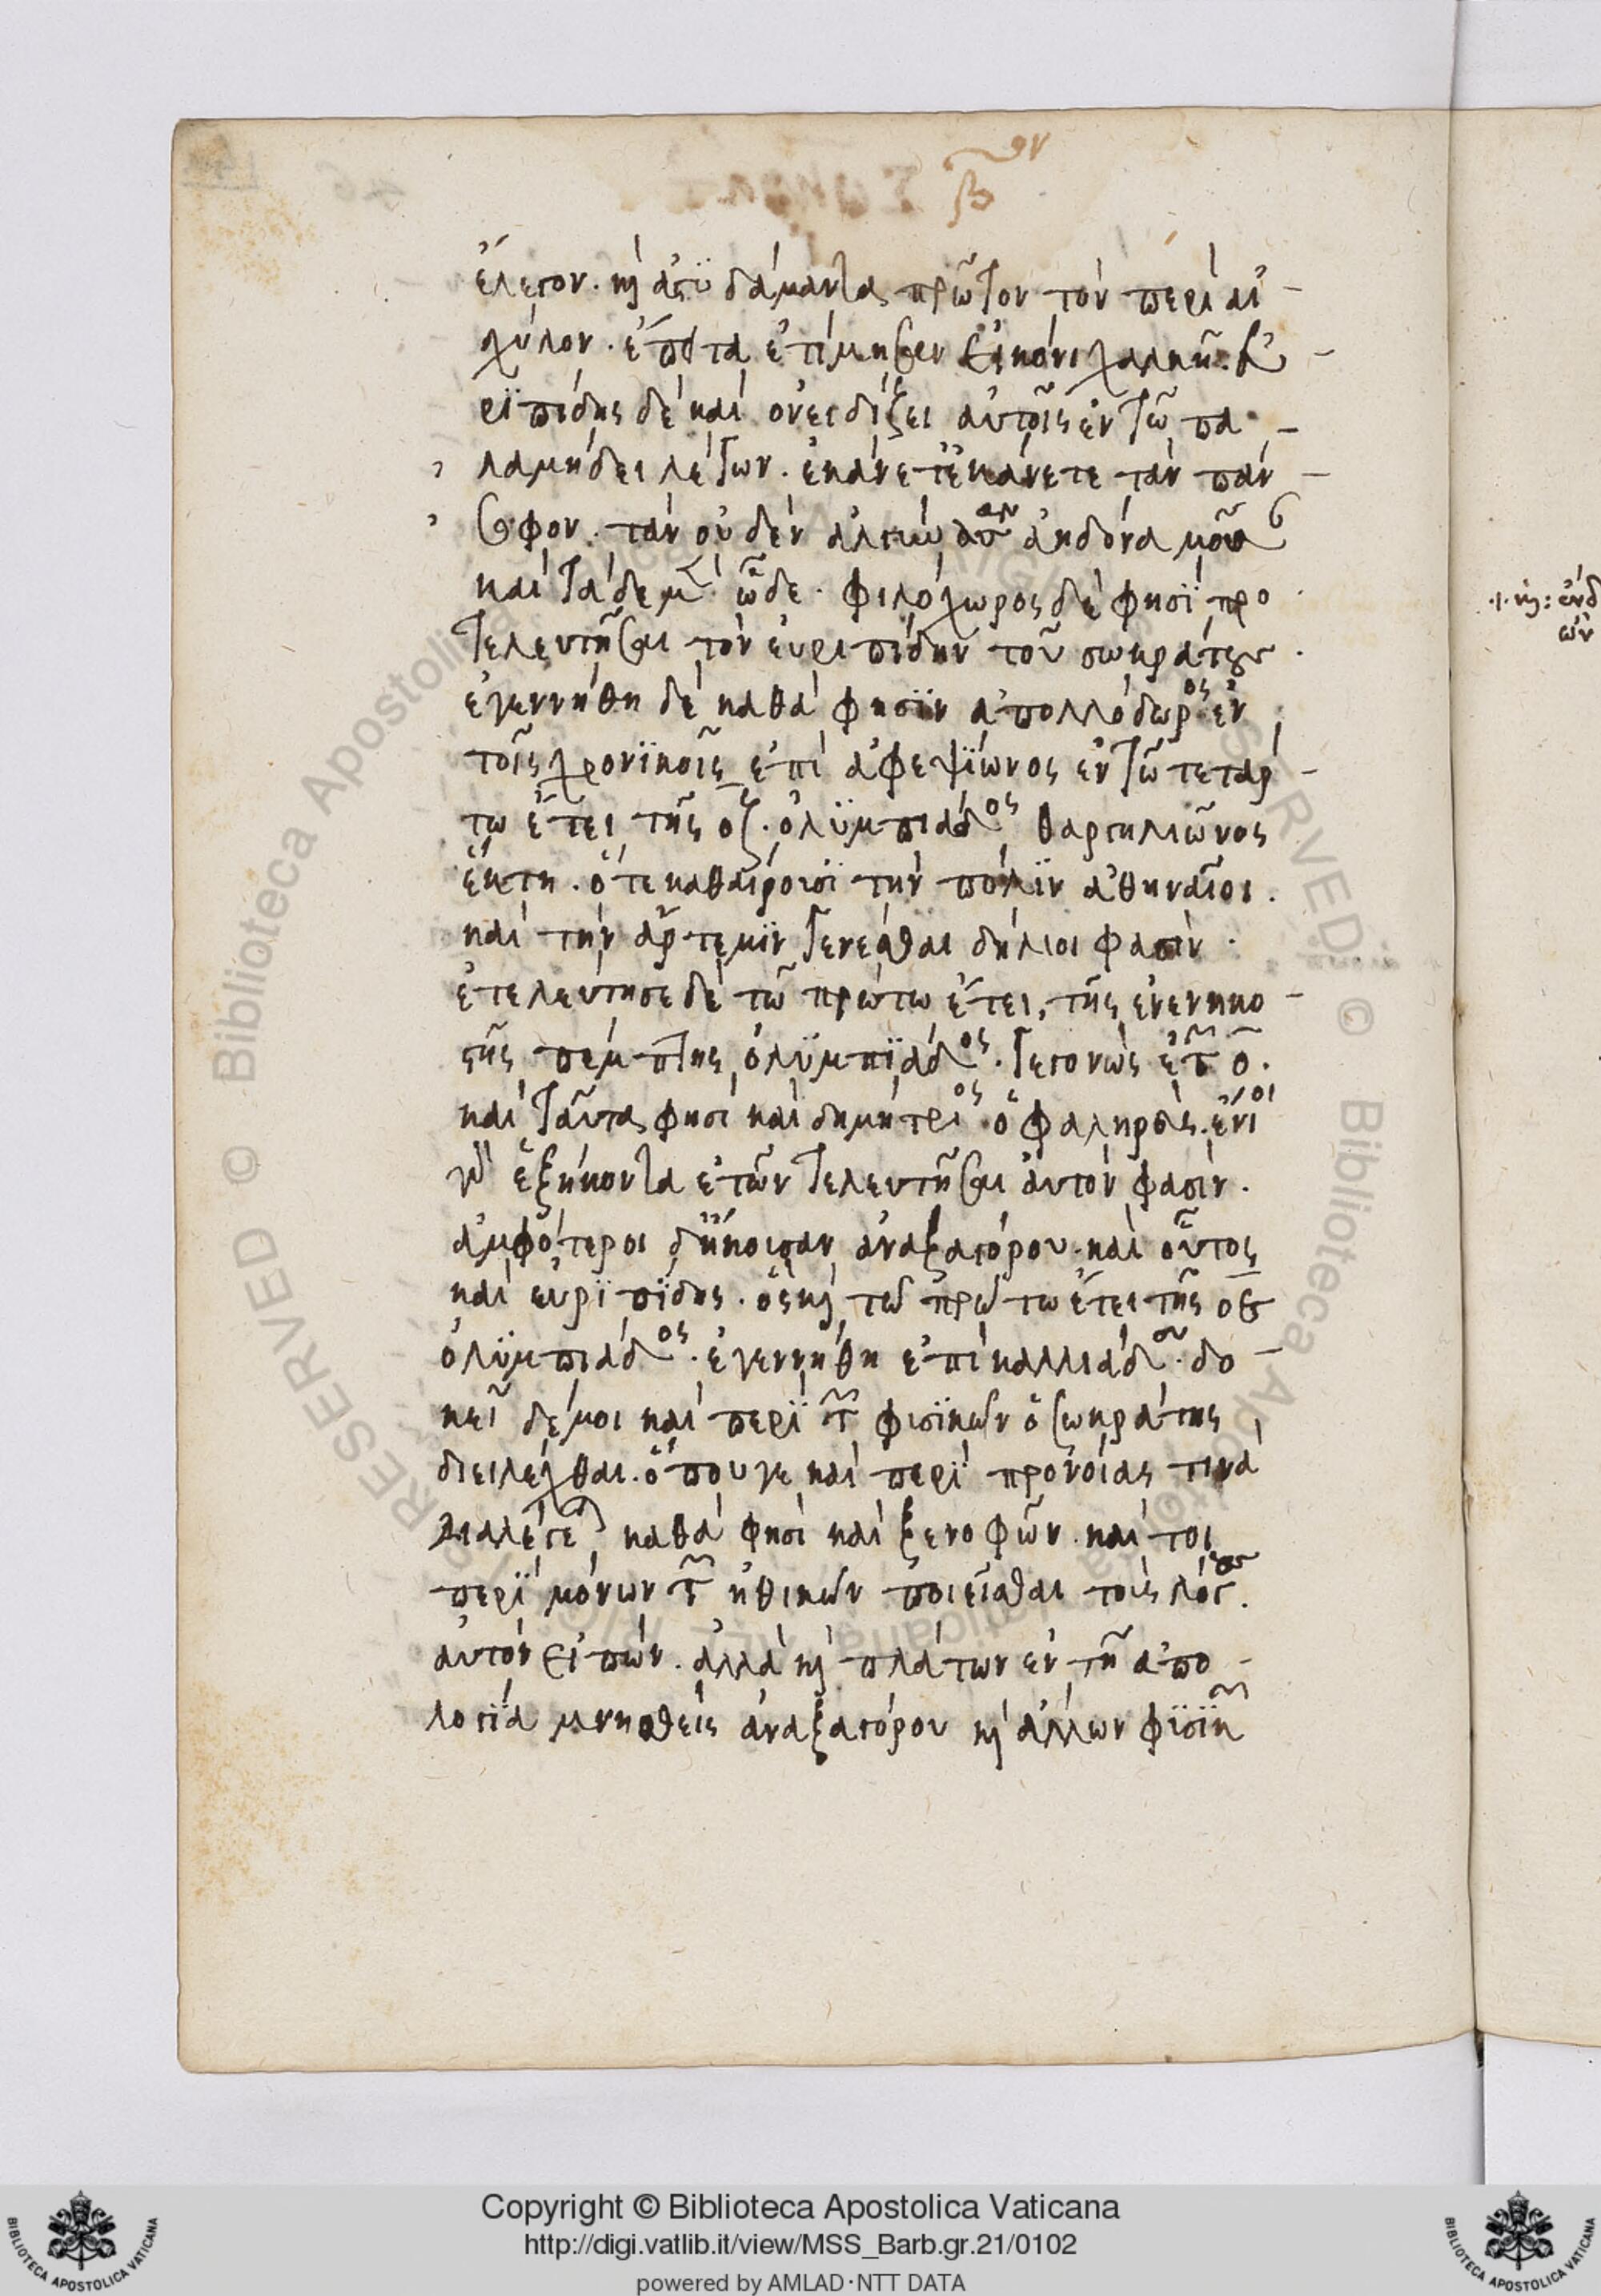 βον
ἔλεγον. καὶ ἀστϋδάμαντα, πρῶτον τὸν περὶ αἰ-
χύλον. ἔπειτα ἐτίμησεν εἰκόνι χαλκῆ. εὐ-
ριπίδης δὲ καὶ ὀνειδίζει αὐτοῖς ἐν τῶ πα-
λαμήδει λέγων. ἐκάνετ ἐκάνετε τὰν πάν-
σοφον. τὰν οὐδὲν ἀλγύνουσαν ἀηδόνα μουσ
καὶ τάδε μὲν ὧδε. φιλόχωρος δέ φησϊ προ
τελευτῆσαι τὸν εὐριπίδην τοῦ σωκράτους.
ἐγεννήθη δὲ καθά φησϊν ἀπολλόδωρος ἐν
τοῖς χρονϊκοῖς ἐπὶ ἀφεψϊωνος ἐν τῶ τετάρ-
τω ἔτει τῆς οζ. ὀλϋμπιάδος θαργηλιῶνος
ἕκτη. ὅτε καθαίρουσϊ τὴν πόλϊν ἀθηναῖοι.
καὶ τὴν ἄρτεμϊν γενέσθαι δήλιοι φασὶν.
ἐτελεύτησε δὲ τῶ πρώτω ἔτει, τῆς ἐνενηκο-
στῆς πέμπτης ὀλϋμπϊάδος. γεγονὼς ἐτῶν ο.
καὶ ταῦτα φησὶ καὶ δημήτριος ὁ φαληρεὺς. ἔνιοι
γὰρ ἑξήκοντα ἐτῶν τελευτῆσαι ἀυτὸν φασὶν.
ἀμφότεροι δἤκουσαν ἀναξαγόρου. καὶ οὗτος
καὶ ευρϊπϊδης. ὃς καὶ τῶ πρώτω ἔτει τῆς οε
ὀλϋμπιάδος. ἐγεννήθη ἐπὶ καλλιάδου. δο-
κεῖ δέ μοι καὶ περϊ τῶν φισϊκῶν ὁ σωκράτης
διειλέχθαι. ὅπου γε καὶ περϊ προνοίας τινὰ
διαλέγεται καθά φησὶ καὶ ξενοφῶν. καί τοι
περϊ μόνων τῶν ἠθικῶν ποιεῖσθαι τοὺς λόγους.
ἀυτὸν εἰπών. ἀλλὰ καὶ πλάτων ἐν τῆ ἀπο-
λογϊα μνησθεὶς ἀναξαγόρου καὶ ἄλλων φϊσϊκῶν
Copyright © Biblioteca Apostolica Vaticana
http://digi.vatlib.it/view/MSS_Barb.gr.21/0102
powered by AMLAD·NTT DATA